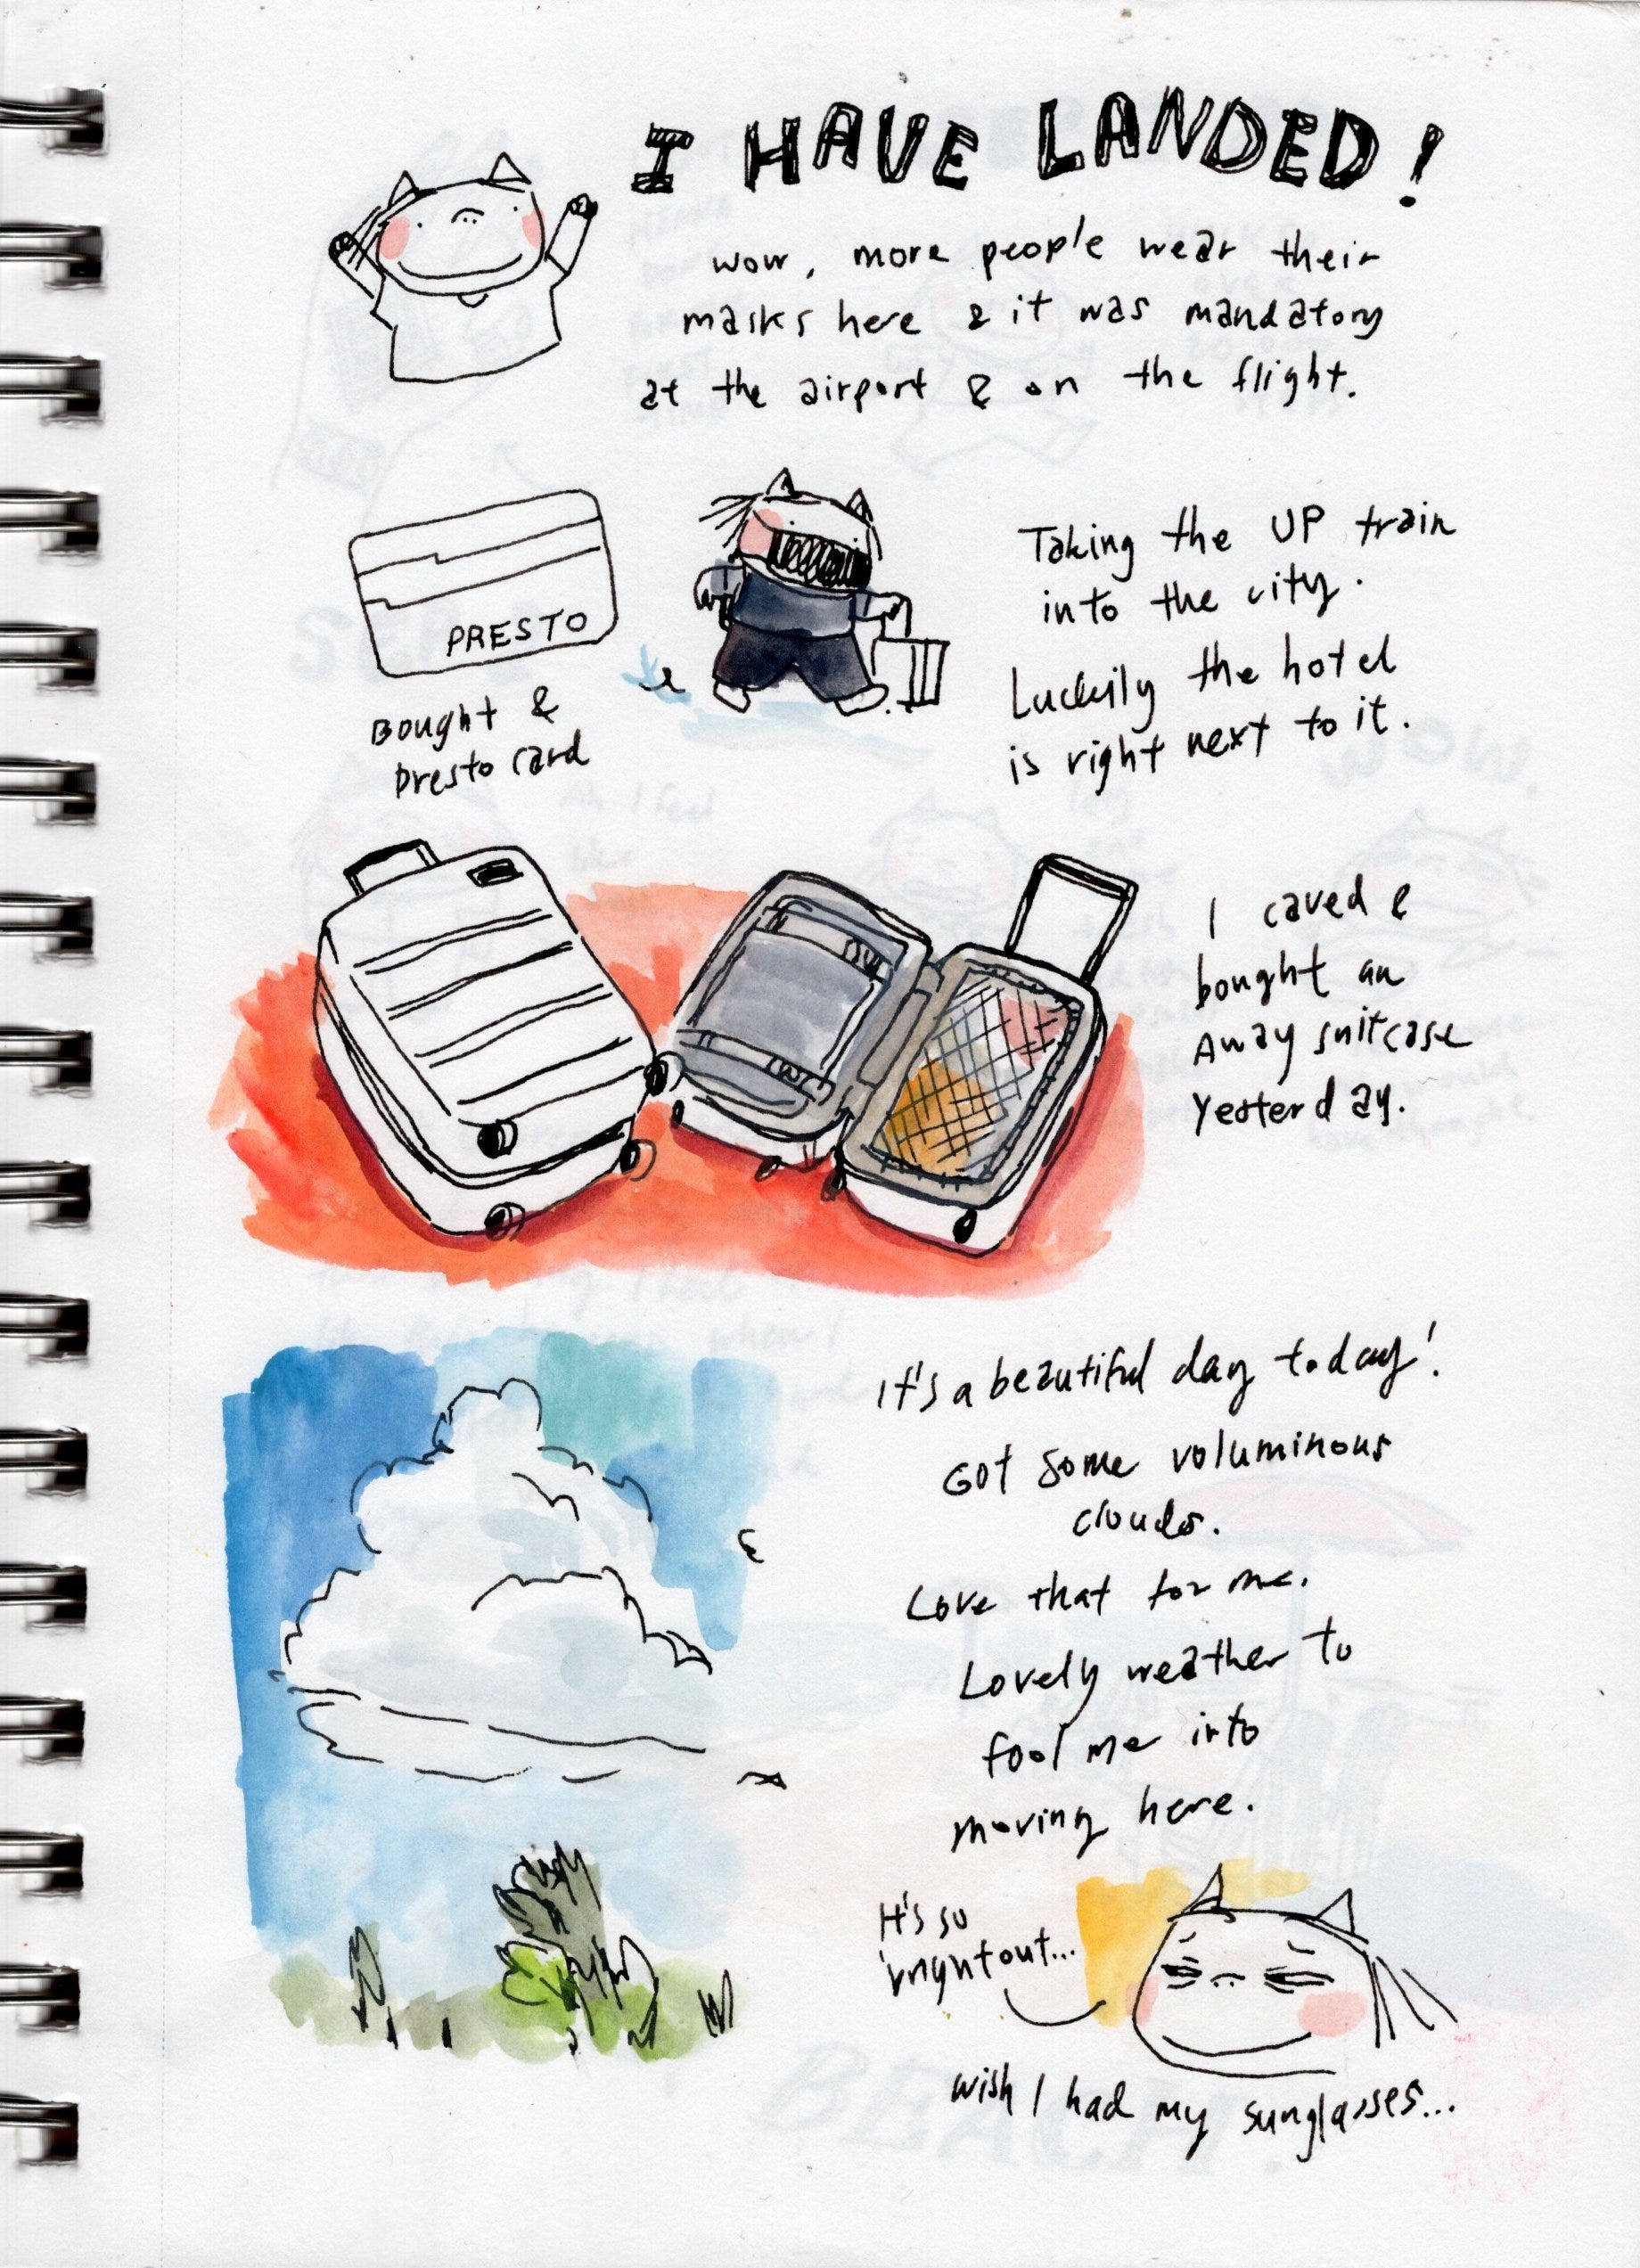 I HAVE LANDED!
wow, more people wear their
masks here & it was mandatory
at the airport & on the flight.
PRESTO
Bought &
presto card
Taking the UP train
into the city.
Luckily the hotel
is right next to it.
I caved &
bought an
Away suitcase
yesterday.
It's a beautiful day today!
Got some voluminous
clouds.
Love that for me.
Lovely weather to
fool me into
moving here.
It's so
bright out...
wish I had my sunglasses...